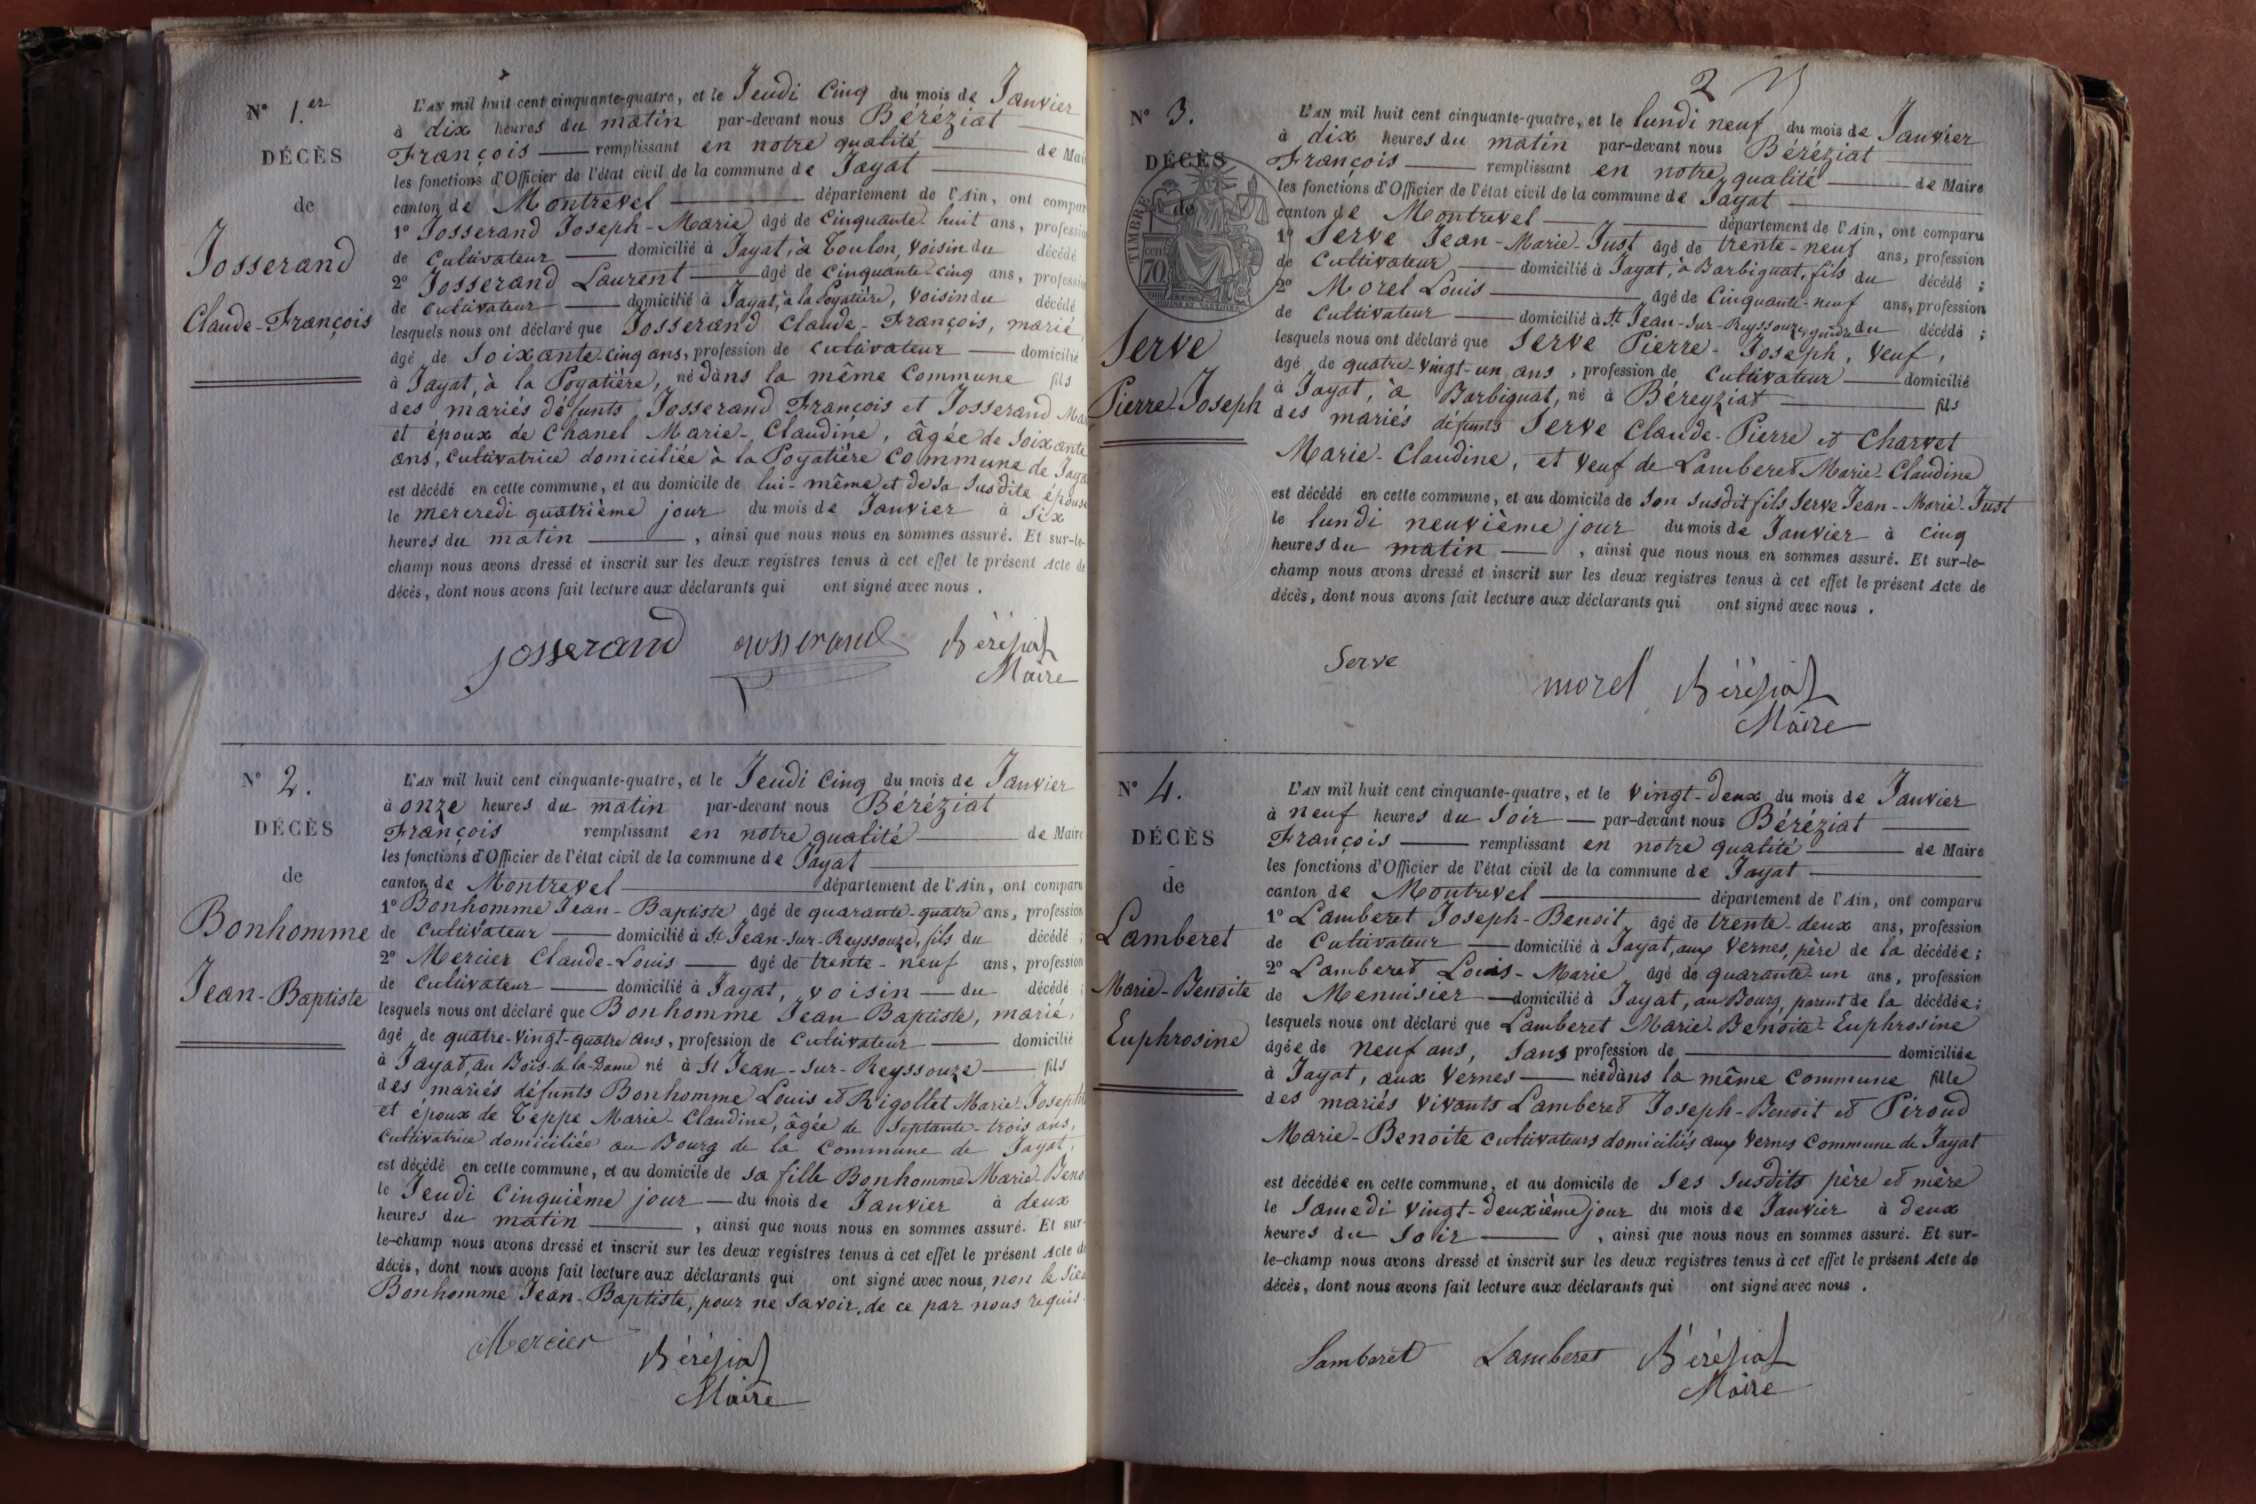 N° 1.er
DÉCÈS
de
Josserand
Claude-François
L'AN mil huit cent cinquante-quatre, et le Jeudi Cinq du mois de Janvier
à dix heures du matin par-devant nous Béréziat
François remplissant en notre qualité de Mai
les fonctions d'Officier de l'état civil de la commune de Jayat
canton de Montrevel département de l'Ain, ont compar
1° Josserand Joseph-Marie âgé de Cinquante-huit ans, professio
de Cultivateur domicilié à Jayat, à Toulon, Voisin du décédé
2° Josserand Laurent âgé de cinquante-cinq ans, professio
de cultivateur domicilié à Jayat, à la Poyatière, Voisin du décédé
lesquels nous ont déclaré que Josserand Claude-François, marié,
âgé de Soixante-cinq ans, profession de cultivateur domicilié
à Jayat, à la Poyatière, né dans la même Commune fils
des mariés défunts Josserand François et Josserand Ma
et époux de Chanel Marie-Claudine, âgée de Soixante
ans, Cultivatrice domiciliée à la Poyatière Commune de Jaya
est décédé en cette commune, et au domicile de lui-même et de sa susdite épouse
le mercredi quatrième jour du mois de Janvier à Six
heures du matin , ainsi que nous nous en sommes assuré. Et sur-le-
champ nous avons dressé et inscrit sur les deux registres tenus à cet effet le présent Acte de
décès, dont nous avons fait lecture aux déclarants qui ont signé avec nous .
Josserand Josserand Béréziat
Maire
N° 2.
DÉCÈS
de
Bonhomme
Jean-Baptiste
L'AN mil huit cent cinquante-quatre, et le Jeudi Cinq du mois de Janvier
à onze heures du matin par-devant nous Béréziat
François remplissant en notre qualité de Maire
les fonctions d'Officier de l'état civil de la commune de Jayat
canton de Montrevel département de l'Ain, ont comparu
1° Bonhomme Jean-Baptiste âgé de quarante-quatre ans, profession
de Cultivateur domicilié à St Jean-sur-Reyssouze, fils du décédé ;
2° Mercier Claude-Louis âgé de trente-neuf ans, profession
de Cultivateur domicilié à Jayat, voisin du décédé ;
lesquels nous ont déclaré que Bonhomme Jean Baptiste, marié,
âgé de quatre-vingt-quatre ans, profession de Cultivateur domicilié
à Jayat, au Bois-de-la-Dame né à St Jean-sur-Reyssouze fils
des mariés défunts Bonhomme Louis et Rigollet Marie-Joseph
et époux de Teppe Marie-Claudine, âgée de Septante-trois ans,
Cultivatrice domiciliée au Bourg de la Commune de Jayat,
est décédé en cette commune, et au domicile de sa fille Bonhomme Marie-Beno
le Jeudi Cinquième jour du mois de Janvier à deux
heures du matin , ainsi que nous nous en sommes assuré. Et sur-
le-champ nous avons dressé et inscrit sur les deux registres tenus à cet effet le présent Acte de
décès, dont nous avons fait lecture aux déclarants qui ont signé avec nous, non le Sieu
Bonhomme Jean-Baptiste, pour ne savoir, de ce par nous requis.
Mercier Béréziat
Maire
2
N° 3.
DÉCÈS
de
TIMBRE
70
Serve
Pierre-Joseph
L'AN mil huit cent cinquante-quatre, et le lundi neuf du mois de Janvier
à dix heures du matin par-devant nous Béréziat
François remplissant en notre qualité de Maire
les fonctions d'Officier de l'état civil de la commune de Jayat
canton de Montrevel département de l'Ain, ont comparu
1° Serve Jean-Marie-Just âgé de trente-neuf ans, profession
de Cultivateur domicilié à Jayat, à Barbiguat, fils du décédé ;
2° Morel Louis âgé de Cinquante-neuf ans, profession
de Cultivateur domicilié à St Jean-sur-Reyssouze, gendre du décédé ;
lesquels nous ont déclaré que Serve Pierre-Joseph, Veuf,
âgé de quatre-vingt-un ans, profession de Cultivateur domicilié
à Jayat, à Barbiguat, né à Béreyziat fils
des mariés défunts Serve Claude-Pierre et Charvet
Marie-Claudine, et veuf de Lamberet Marie-Claudine
est décédé en cette commune, et au domicile de son susdit fils Serve Jean-Marie-Just
le lundi neuvième jour du mois de Janvier à cinq
heures du matin , ainsi que nous nous en sommes assuré. Et sur-le-
champ nous avons dressé et inscrit sur les deux registres tenus à cet effet le présent Acte de
décès, dont nous avons fait lecture aux déclarants qui ont signé avec nous .
Serve morel Béréziat
Maire
N° 4.
DÉCÈS
de
Lamberet
Marie-Benoite
Euphrosine
L'AN mil huit cent cinquante-quatre, et le vingt-deux du mois de Janvier
à neuf heures du Soir par-devant nous Béréziat
François remplissant en notre qualité de Maire
les fonctions d'Officier de l'état civil de la commune de Jayat
canton de Montrevel département de l'Ain, ont comparu
1° Lamberet Joseph-Benoit âgé de trente-deux ans, profession
de Cultivateur domicilié à Jayat, aux Vernes, père de la décédée ;
2° Lamberet Louis-Marie, âgé de quarante-un ans, profession
de Menuisier domicilié à Jayat, au Bourg, parent de la décédée ;
lesquels nous ont déclaré que Lamberet Marie-Benoite-Euphrosine
âgée de neuf ans, sans profession de domiciliée
à Jayat, aux Vernes née dans la même Commune fille
des mariés vivants Lamberet Joseph-Benoit et Piroud
Marie-Benoite cultivateurs domiciliés aux Vernes Commune de Jayat
est décédée en cette commune, et au domicile de ses susdits père et mère
le Samedi vingt-deuxième jour du mois de Janvier à deux
heures du Soir , ainsi que nous nous en sommes assuré. Et sur-
le-champ nous avons dressé et inscrit sur les deux registres tenus à cet effet le présent Acte de
décès, dont nous avons fait lecture aux déclarants qui ont signé avec nous .
Lamberet Lamberet Béréziat
Maire